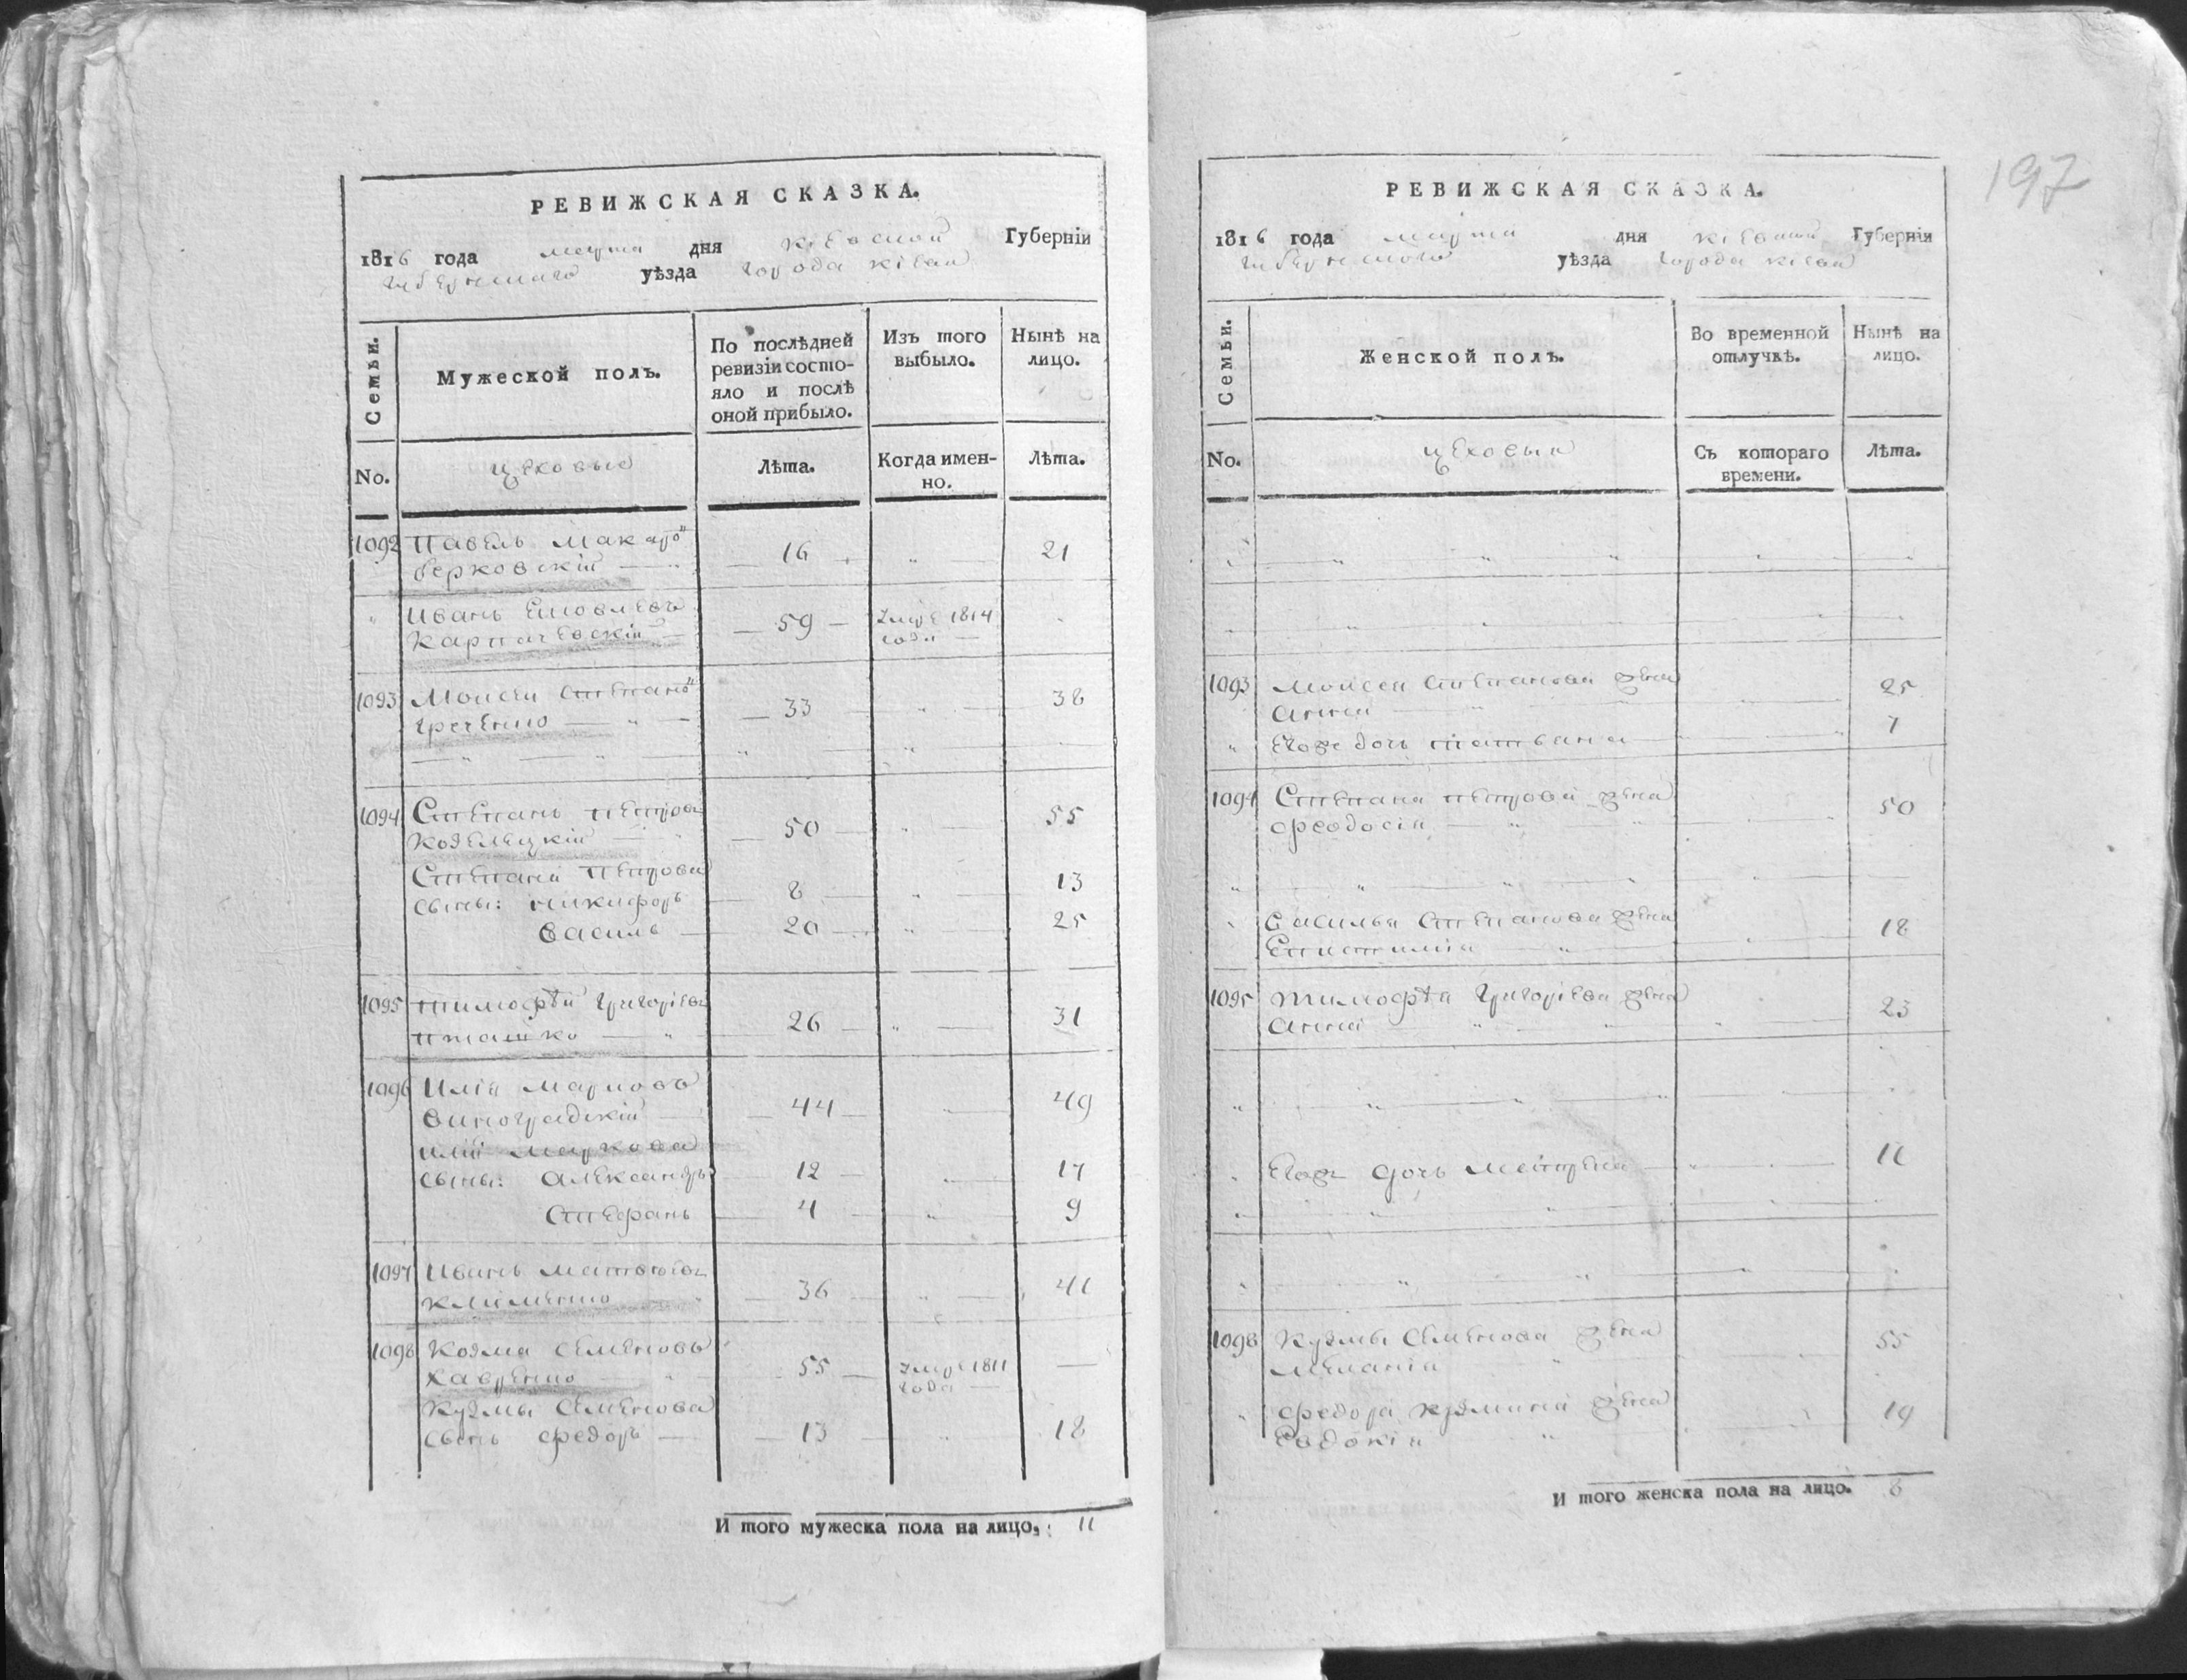 РЕВИЖСКАЯ СКАЗКА.
1816 года марта дня кіевской Губерніи
губернскаго уѣзда города кіева
Семьи.
Мужеской полъ.
По послѣдней
ревизіи состо-
яло и послѣ
оной прибыло.
Изъ того
выбыло.
Нынѣ на
лицо.
No.
цеховые
Лѣта.
Когда имен-
но.
Лѣта.
1092 Павелъ Макаро"
Берковскій 16 21
Иванъ Яковлевъ 59 умре 1814
Карпачевскій года
1093 Моисей Степано" 33 38
Греченко
1094 Степанъ Петровъ 50 55
Козелецкій
Степана Петрова
сыны: Никифоръ 8 13
Василь 20 25
1095 Тимофѣй Григорьевъ 26 31
Пташко
1096 Илія Марковъ 44 49
Виноградскій
Иліи Маркова
сыны: Александръ 12 17
Стефанъ 4 9
1097 Иванъ Матвѣевъ 36 41
Клименко
1098 Козма Семеновъ 55 умре 1811
Хавренко года
Кузмы Семенова
сынъ Федоръ 13 18
И того мужеска пола на лицо, 11
197
РЕВИЖСКАЯ СКАЗКА.
1816 года марта дня кіевской Губерніи
губернского уѣзда города кіева
Семьи.
Женской полъ.
Во временной
отлучкѣ.
Нынѣ на
лицо.
No.
цеховыя
Съ котораго
времени.
Лѣта.
1093 Моисея Степанова жена 25
Анна
Егоже дочь Татіана 7
1094 Степана Петрова жена 50
Феодосія
Василья Степанова жена 18
Епистимія
1095 Тимофѣя Григоріева жена 23
Анна
Егожъ дочь Матрена 11
1098 Кузмы Семенова жена 55
Меланія
Федора Кузмина жена 19
Евдокія
И того женска пола на лицо. 8